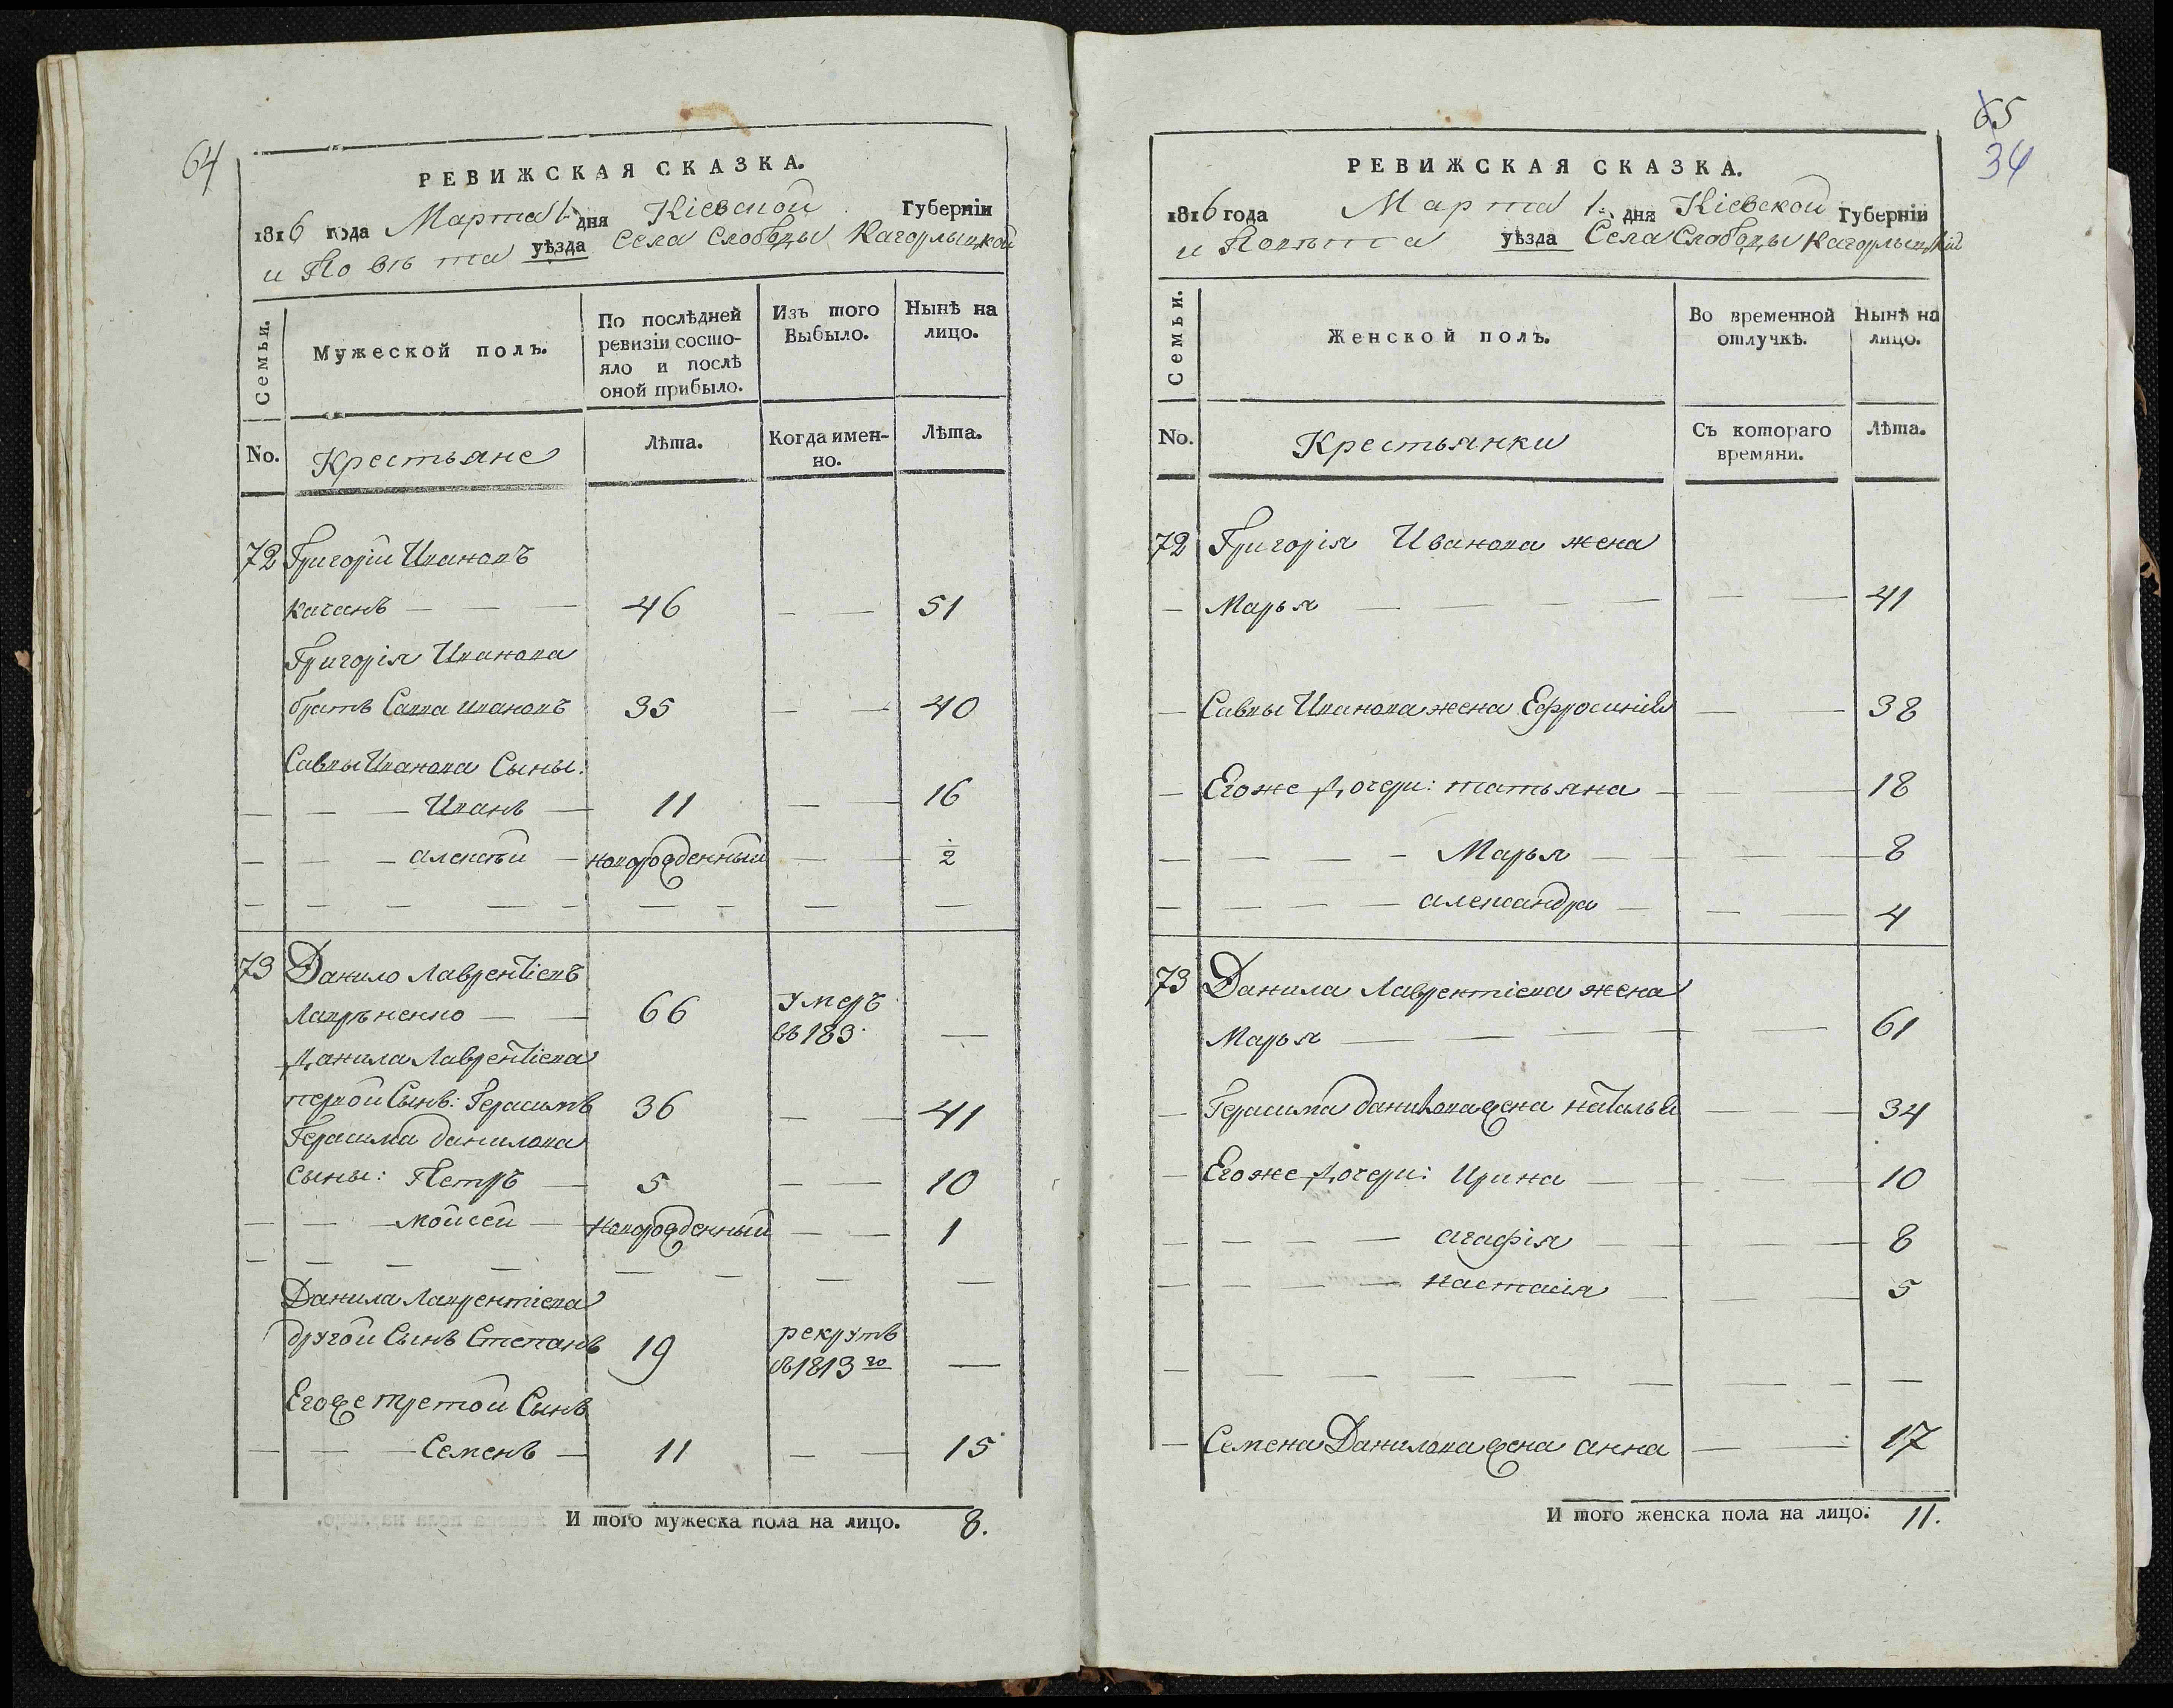 64
РЕВИЖСКАЯ СКАЗКА.
1816 года Марта 1. дня Кіевской Губерніи
и Повѣта уѣзда Села Слободы Кагорлыцкой
Семьи.
Мужеской полъ.
По послѣдней
ревизіи состо-
яло и послѣ
оной прибыло.
Изъ того
Выбыло.
Нынѣ на
лицо.
No.
Крестьяне
Лѣта.
Когда имен-
но.
Лѣта.
72 Григорій Ивановъ
Качанъ — — — 46 — — 51
Григорія Иванова
братъ Савва Ивановъ 35 — — 40
Саввы Иванова Сыны:
— — — Иванъ — 11 — — 16
— — — Алексѣй — новорожденный — — 2
73 Данило Лаврентіевъ
Лавръненко — — 66 умеръ
въ 183. —
Данила Лаврентіева
первой Сынъ: Герасимъ 36 — — 41
Герасима Данилова
сыны: Петръ — 5 — — 10
— — — Мойсей — новорожденный — — 1
Данила Лаврентіева
другой Сынъ Степанъ 19 рекрутъ
въ 1813 го —
Егоже третой Сынъ
— — — Семенъ — 11 — — 15
И того мужеска пола на лицо. 8.
65
34
РЕВИЖСКАЯ СКАЗКА.
1816 года Марта 1. дня Кіевской Губерніи
и Повѣта уѣзда Села Слободы Кагорлыцкой
Семьи.
Женской полъ.
Во временной
отлучкѣ.
Нынѣ на
лицо.
No.
Крестьянки
Съ котораго
времяни.
Лѣта.
72 Григорія Иванова жена
— Марья — — — — — — 41
— Саввы Иванова жена Ефросинія — — 38
— Егоже Дочери: татьяна — — — 18
— — — — Марья — — — 8
— — — — александра — — — 4
73 Данила Лаврентіева жена
Марья — — — — 61
— Герасима данилова жена наталья — — 34
— Егоже Дочери: Ирина — — — 10
— — — — агафія — — — 8
— — — — настасія — — — 5
— Семена Данилова жена анна — — 17
И того женска пола на лицо. 11.